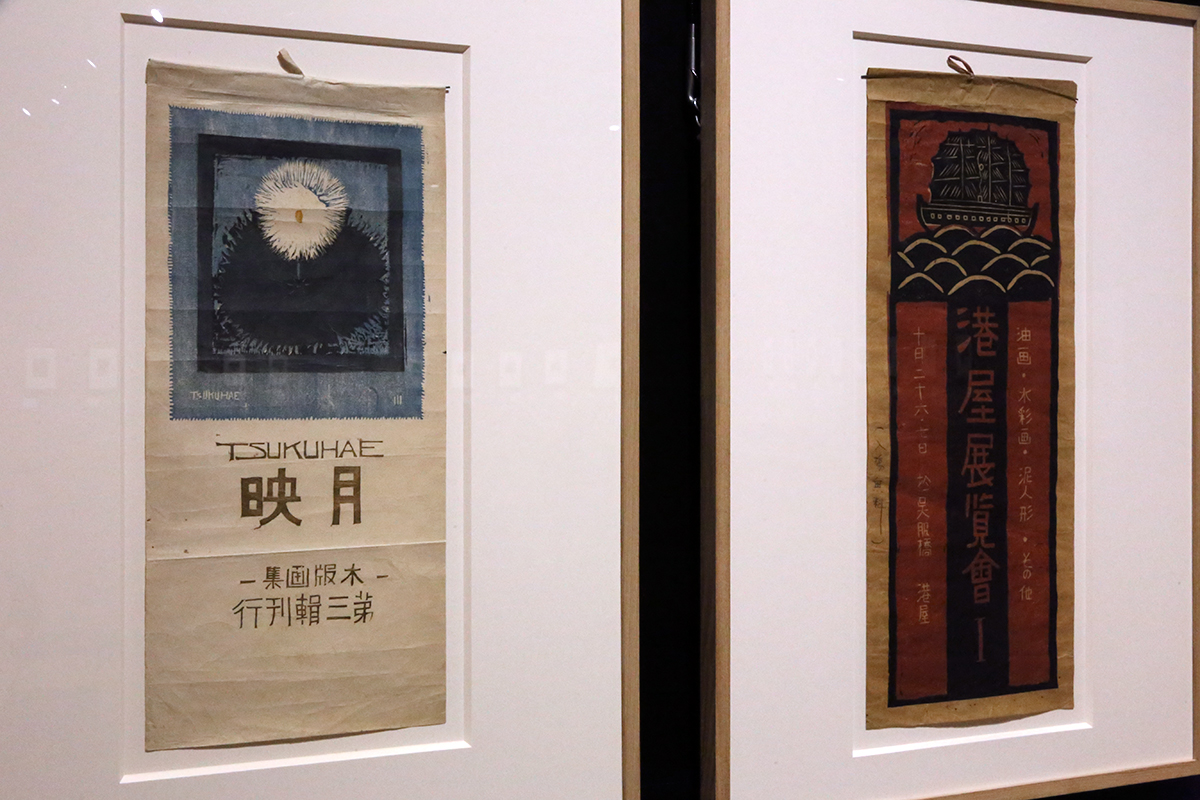 TSUKUHAE
III
TSUKUHAE
月映
－木版画集－
第三輯刊行
油画・水彩画・泥人形・その他
港屋展覧會 I
十月二十六・七日 於呉服橋 港屋
（入場無料）